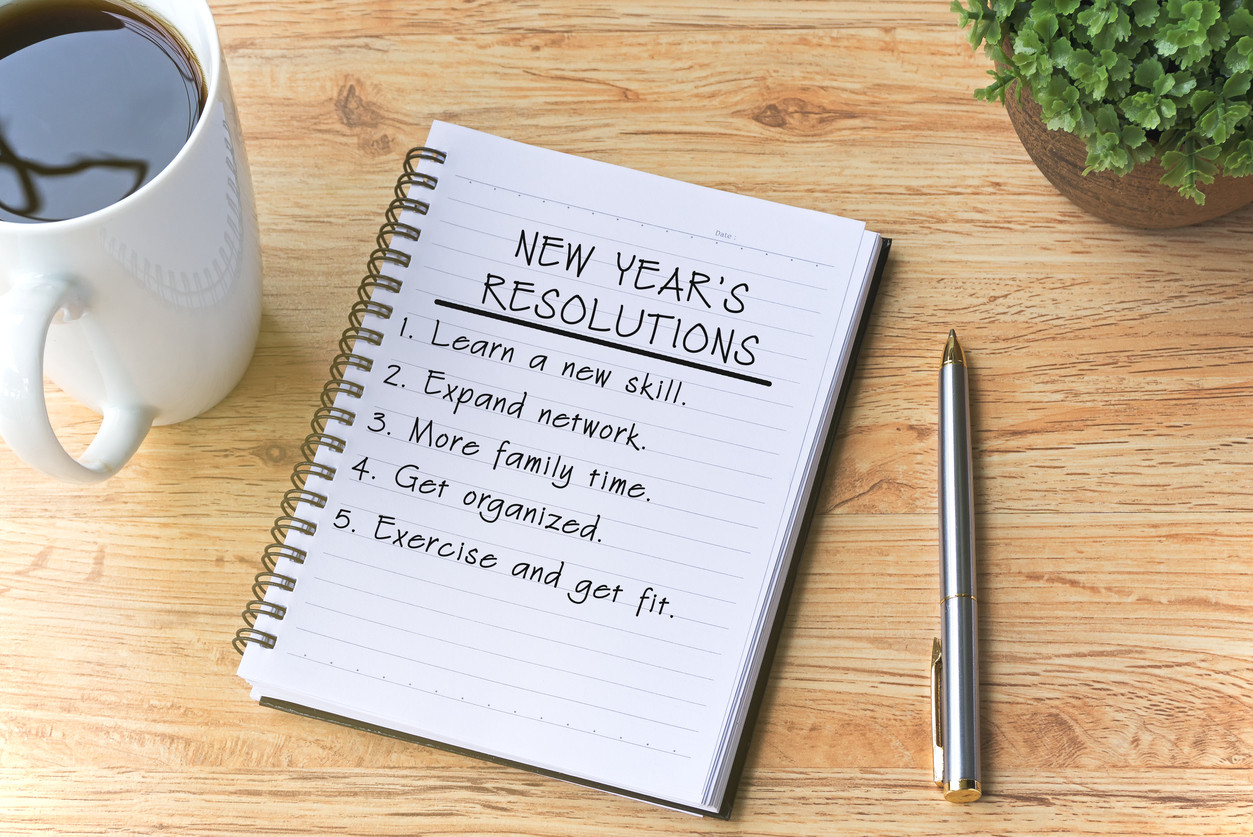 Date :
NEW YEAR'S
RESOLUTIONS
1. Learn a new skill.
2. Expand network.
3. More family time.
4. Get organized.
5. Exercise and get fit.